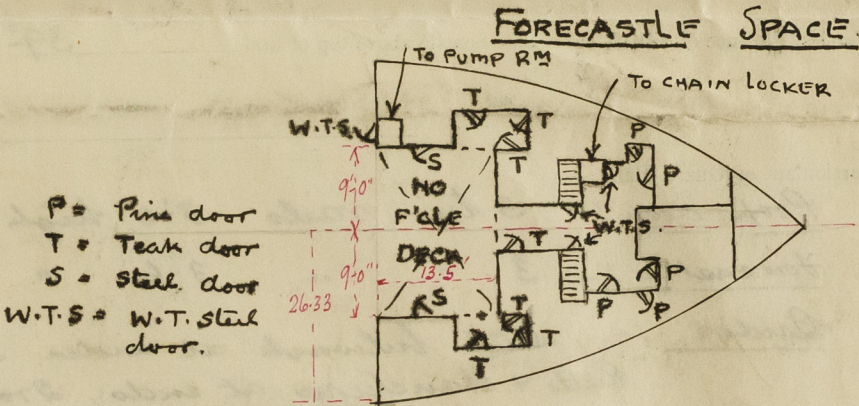 FORECASTLE SPACE.
TO PUMP RM
TO CHAIN LOCKER
W.T.S.
T
T
T
S
P
P
9'-0"
NO
F'CLE
DECK
W.T.S.
9'-0"
13.5'
26.33
T
S
P
P
P
T
T
T
P = Pine door
T = Teak door
S = Steel door
W.T.S = W.T. steel
door.